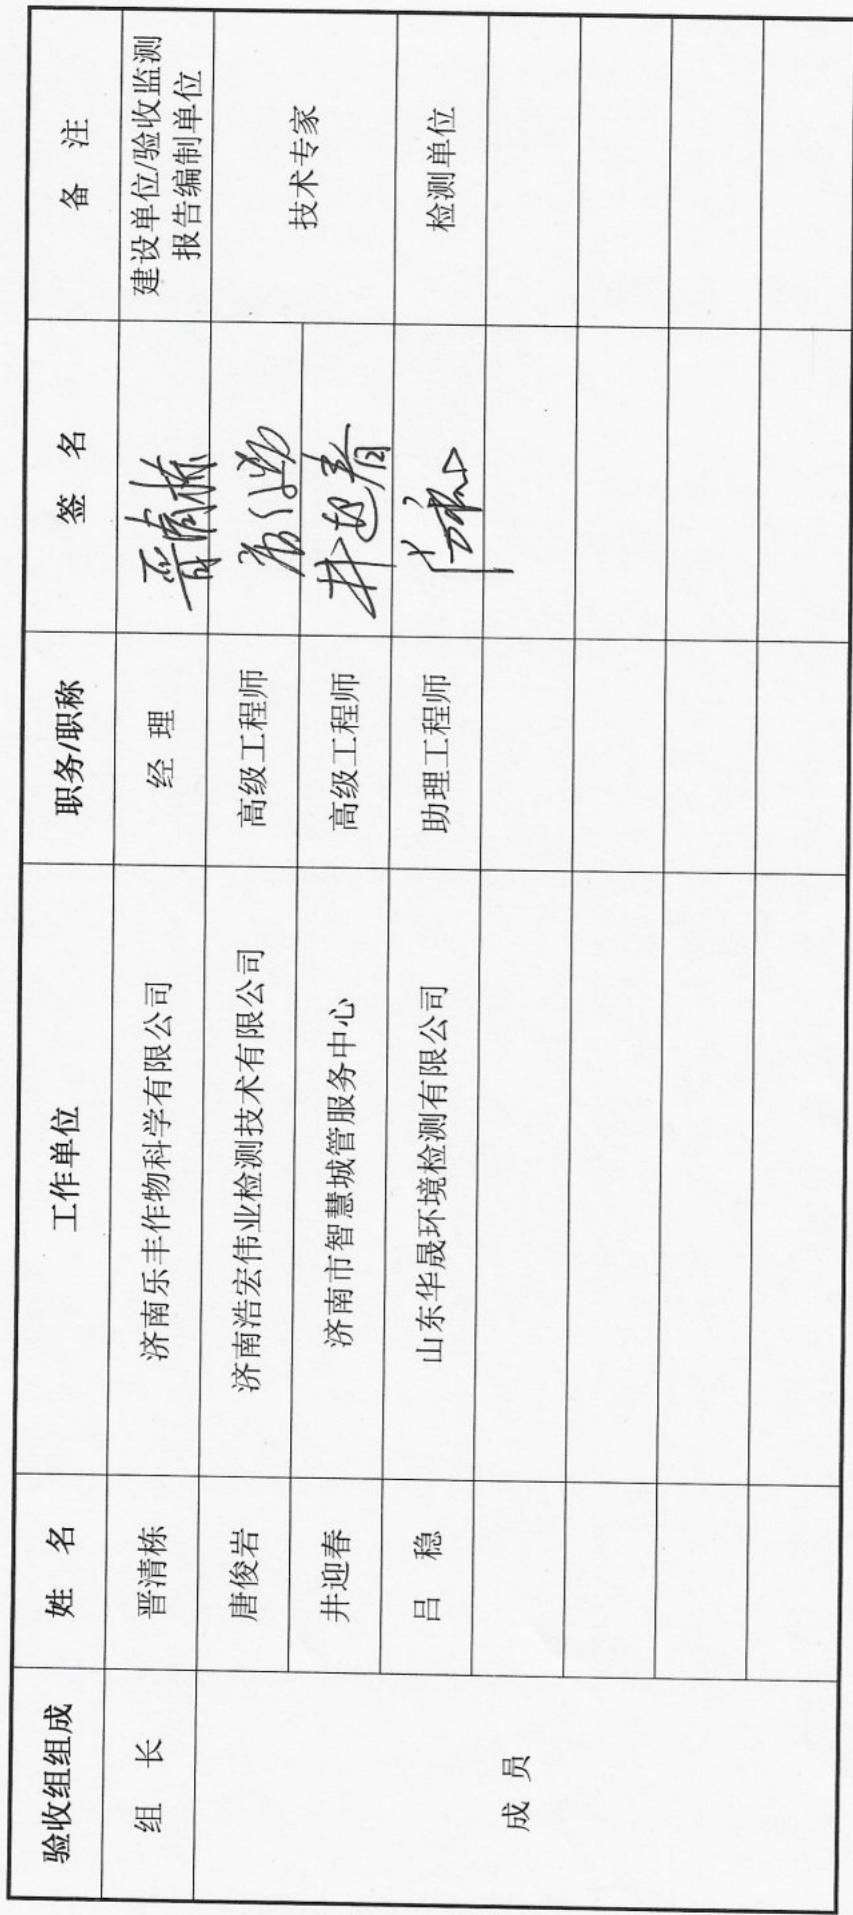 验收组组成 姓 名 工作单位 职务/职称 签 名 备 注
组 长 晋清栋 济南乐丰作物科学有限公司 经 理 晋清栋 建设单位/验收监测
报告编制单位
成 员 唐俊岩 济南浩宏伟业检测技术有限公司 高级工程师 技术专家
井迎春 济南市智慧城管服务中心 高级工程师 井迎春
吕 稳 山东华晟环境检测有限公司 助理工程师 检测单位